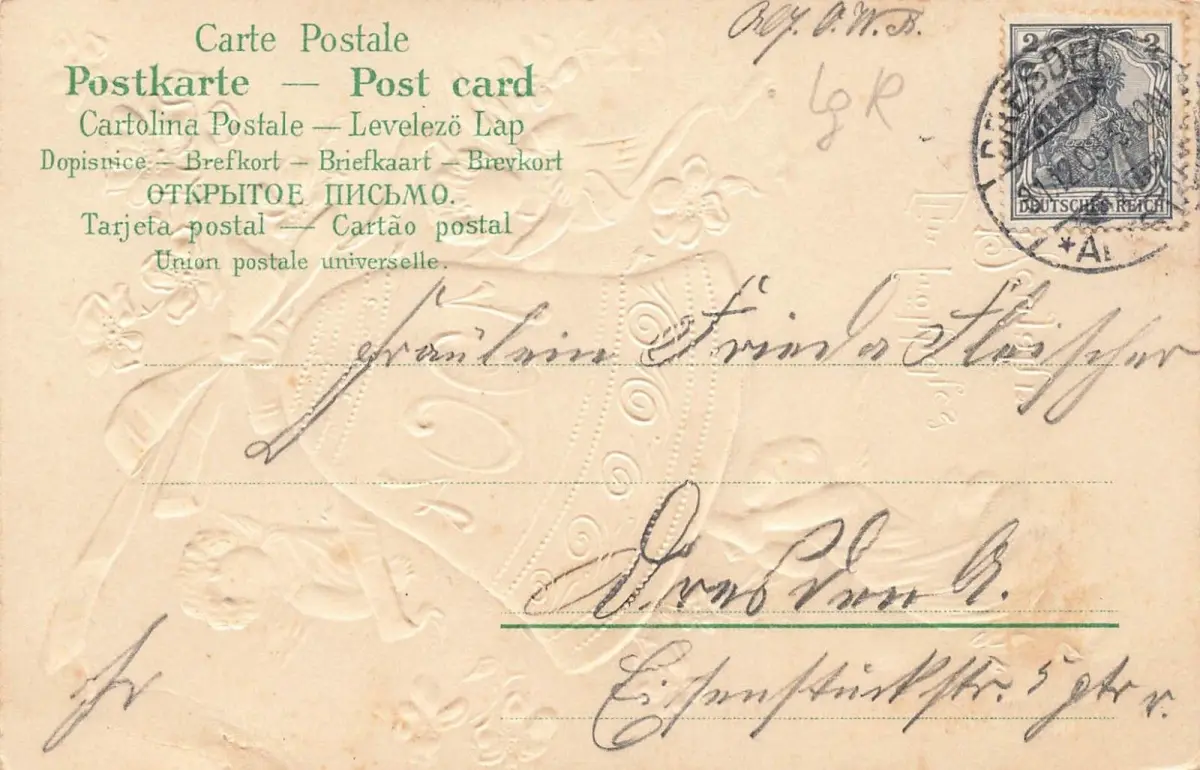 Carte Postale
Postkarte — Post card
Cartolina Postale — Levelező Lap
Dopisnice — Brefkort — Briefkaart — Brevkort
ОТКРЫТОЕ ПИСЬМО.
Tarjeta postal — Cartão postal
Union postale universelle.
O. W. B.
Lg R
2 2
DEUTSCHES REICH
DRESDEN
Fräulein Frieda Fleischer
Dresden A.
Eisenstückstr. 5 ptr r.